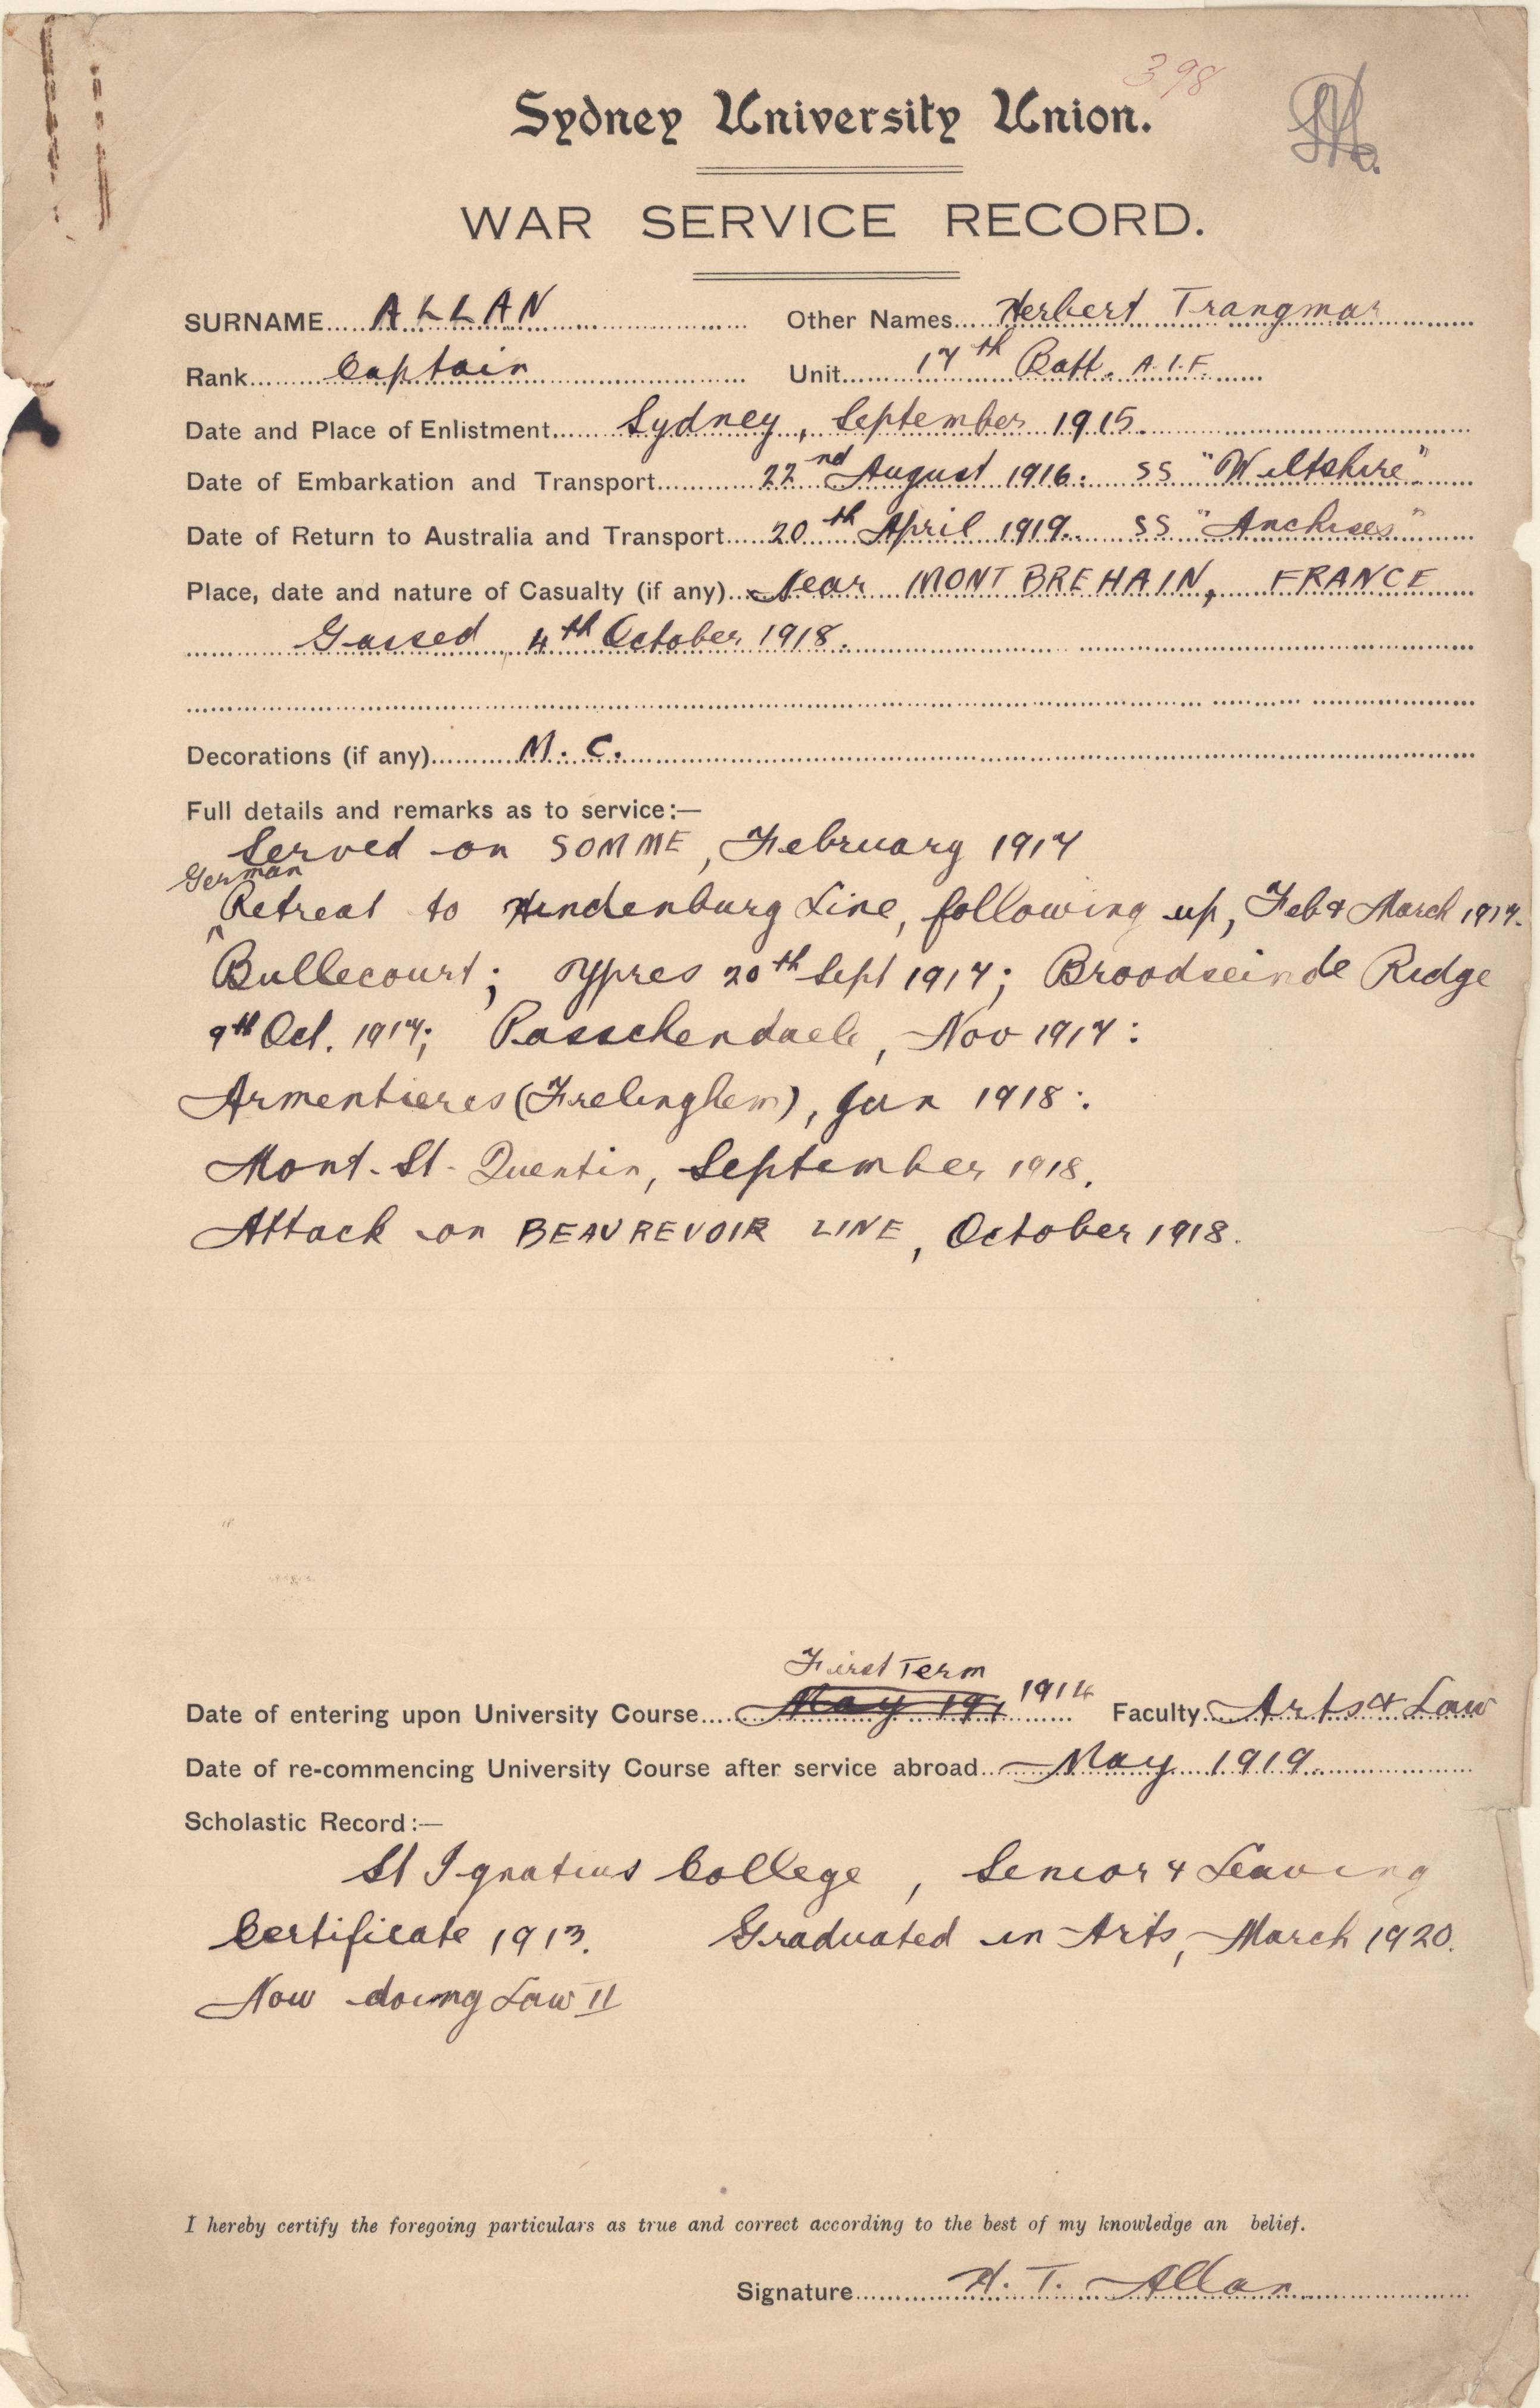 398
Sydney University Union.
WAR SERVICE RECORD.
SURNAME ALLAN Other Names Herbert Trangmar
Rank Captain Unit 17th Batt. A.I.F.
Date and Place of Enlistment Sydney, September 1915.
Date of Embarkation and Transport 22nd August 1916. SS "Wiltshire".
Date of Return to Australia and Transport 20th April 1919. SS "Anchises"
Place, date and nature of Casualty (if any) Near MONTBREHAIN, FRANCE
Gassed, 4th October 1918.
Decorations (if any) M.C.
Full details and remarks as to service:—
Served on SOMME, February 1917
German
Retreat to Hindenburg Line, following up, Feb & March 1917.
Bullecourt; Ypres 20th Sept 1917; Broodseinde Ridge
9th Oct. 1917; Passchendaele, Nov 1917:
Armentieres (Frelinghem), Jan 1918:
Mont-St-Quentin, September 1918.
Attack on BEAUREVOIR LINE, October 1918.
First Term
Date of entering upon University Course May 191 1914 Faculty Arts & Law
Date of re-commencing University Course after service abroad May 1919.
Scholastic Record:—
St Ignatius College, Senior & Leaving
Certificate 1913. Graduated in Arts, March 1920.
Now doing Law II
I hereby certify the foregoing particulars as true and correct according to the best of my knowledge an belief.
Signature H. T. Allan